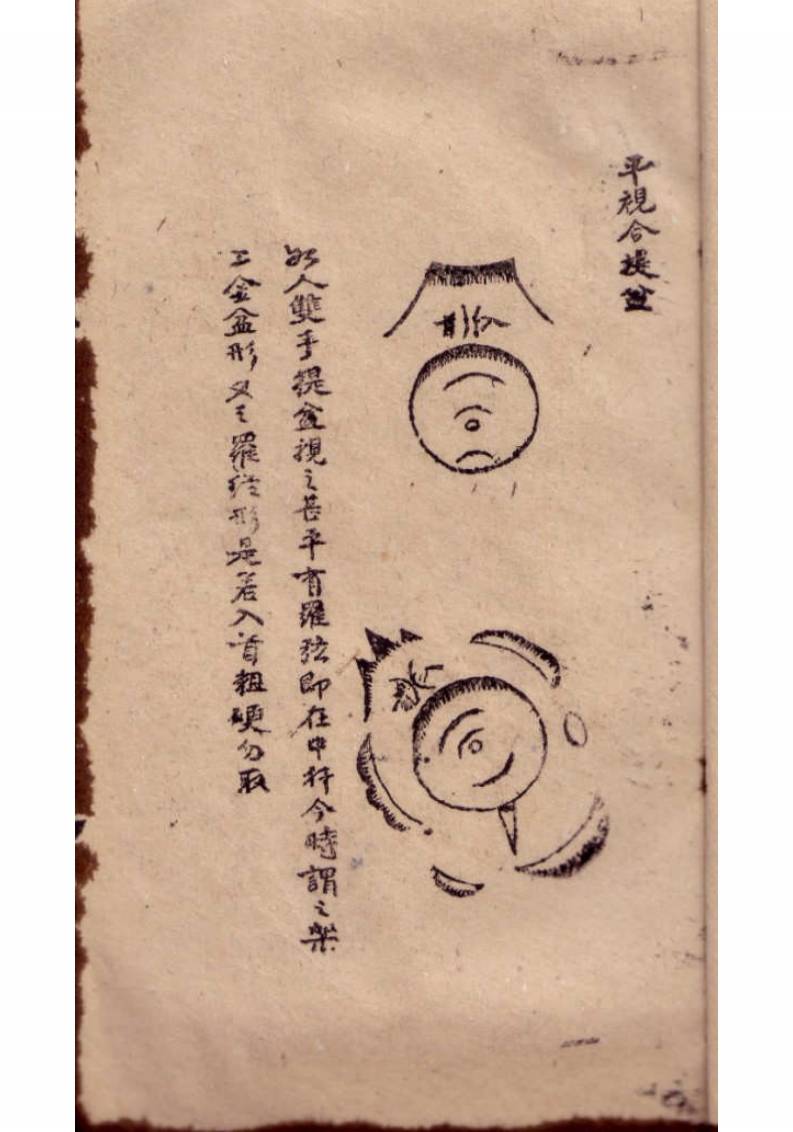 平視合提盆
形
如人雙手提盆視之甚平有羅弦即在中抔今時謂之架
工金盆形又云羅弦形是若入首粗硬勿取